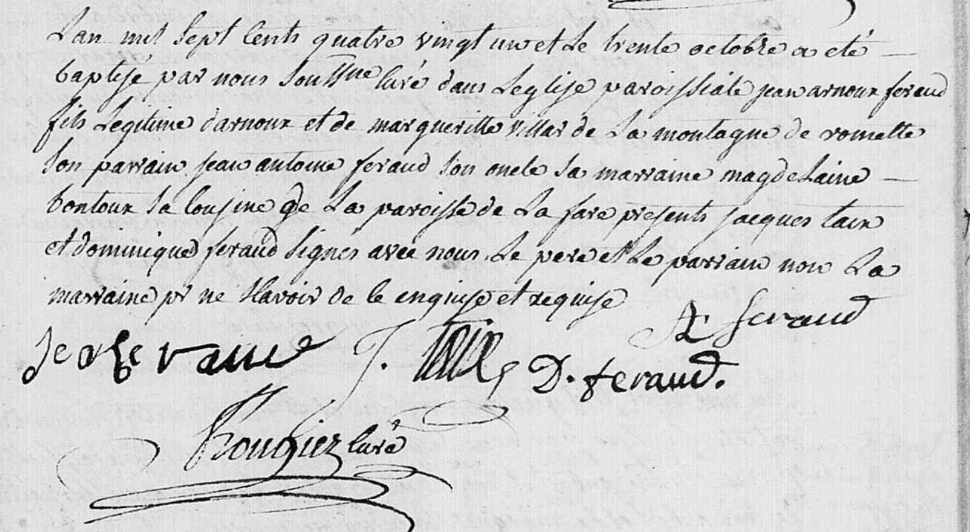 Lan mil sept cents quatre vingt un et le trente octobre a eté
baptisé par nous soussne curé dans leglise paroissiale jean arnoux feraud
fils legitime darnoux et de margueritte villar de la montagne de romette
son parrain jean antoine feraud son oncle sa marraine magdelaine
bontoux sa cousine de la paroisse de la fare presents jacques taix
et dominique feraud signes avec nous le pere et le parrain non la
marraine pr ne scavoir de le enquise et requise
A feraud
feraud J. taix D. feraud.
Rouhiez curé